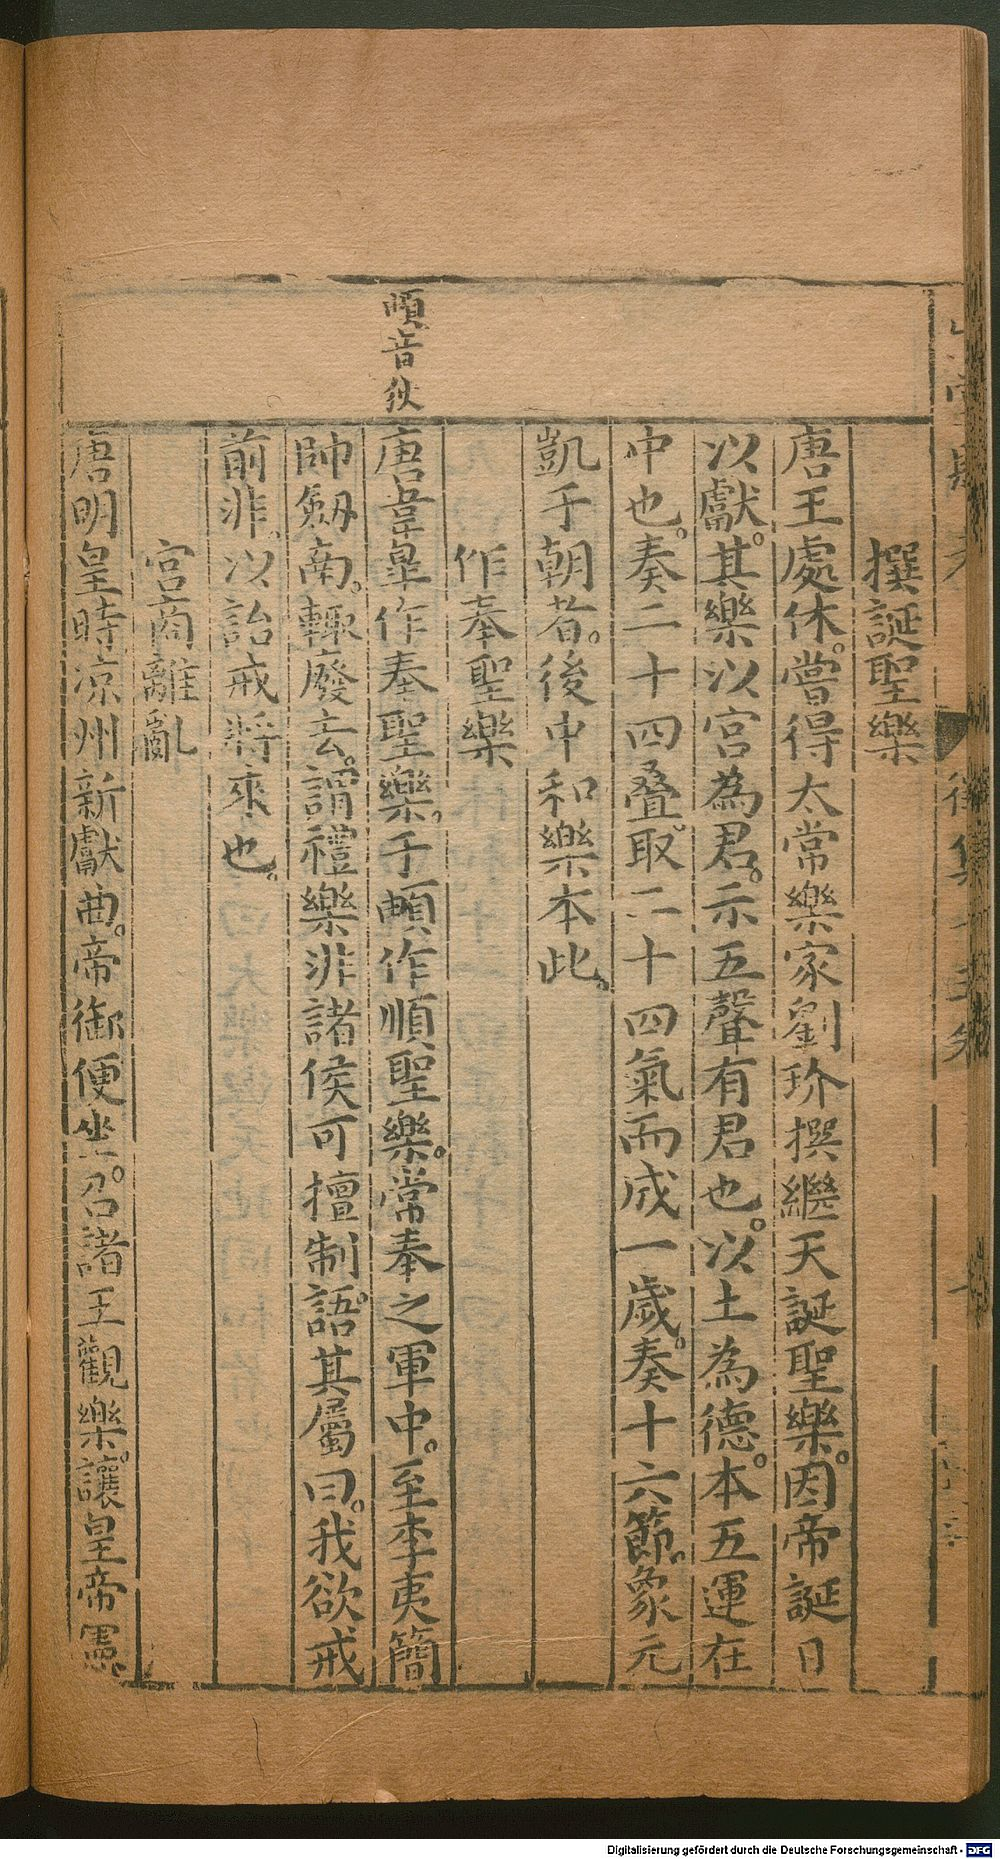 撰誕聖樂
唐王處休。嘗得太常樂家劉玠撰繼天誕聖樂。因帝誕日
以獻。其樂以宮為君。示五聲有君也。以土為德。本五運在
中也。奏二十四疊。取二十四氣而成一歲。奏十六節。象元
凱于朝者。後中和樂本此。
作奉聖樂
頔音狄
唐韋皐作奉聖樂。于頔作順聖樂。常奉之軍中。至李夷簡
帥劔南。輙廢去。謂禮樂非諸侯可擅制。語其屬曰。我欲戒
前非。以詒戒將來也。
宮商離亂
唐明皇時凉州新獻曲。帝御便坐。召諸王觀樂。讓皇帝憲
Digitalisierung gefördert durch die Deutsche Forschungsgemeinschaft - DFG